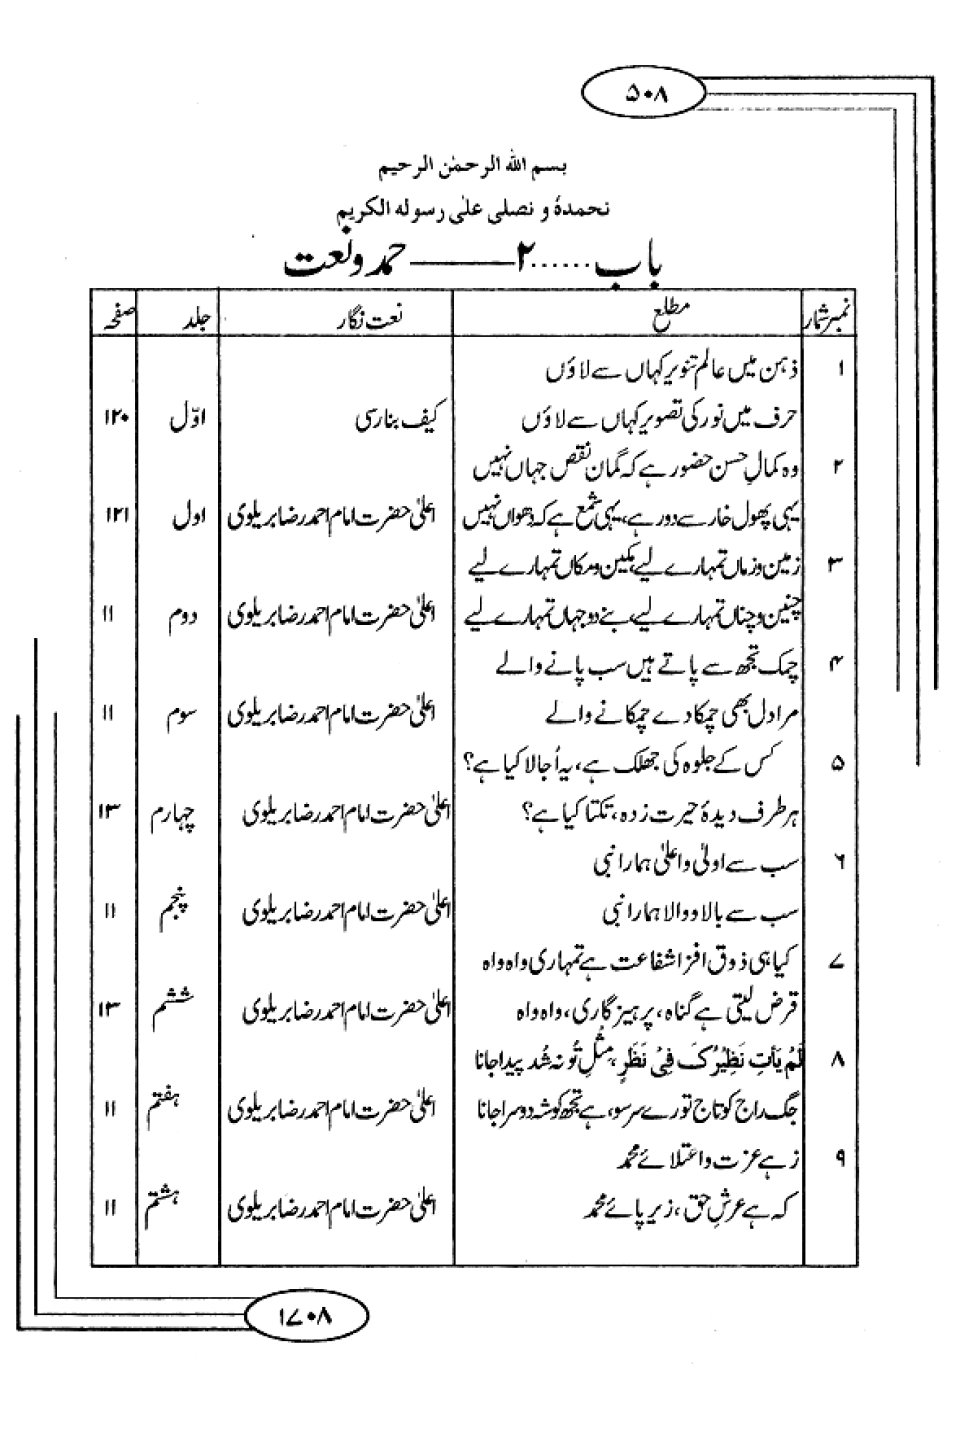 ۵۰۸
بسم الله الرحمٰن الرحیم
نحمدهٗ و نصلی علیٰ رسوله الکریم
باب......۲ــــــــــ حمد و نعت
نمبر شمار مطلع نعت نگار جلد صفحہ
۱ ذہن میں عالم تنویر کہاں سے لاؤں
حرف میں نور کی تصویر کہاں سے لاؤں کیف بنارسی اوّل ۱۲۰
۲ وہ کمالِ حسن حضور ہے کہ گمان نقص جہاں نہیں
یہی پھول خار سے دور ہے، یہی شمع ہے کہ دھواں نہیں اعلیٰ حضرت امام احمد رضا بریلوی اول ۱۲۱
۳ زمین و زماں تمہارے لیے، مکین و مکاں تمہارے لیے
چنین و چناں تمہارے لیے، بنے دو جہاں تمہارے لیے اعلیٰ حضرت امام احمد رضا بریلوی دوم ۱۱
۴ چمک تجھ سے پاتے ہیں سب پانے والے
مرا دل بھی چمکا دے چمکانے والے اعلیٰ حضرت امام احمد رضا بریلوی سوم ۱۱
۵ کس کے جلوہ کی جھلک ہے، یہ اُجالا کیا ہے؟
ہر طرف دیدۂ حیرت زدہ، تکتا کیا ہے؟ اعلیٰ حضرت امام احمد رضا بریلوی چہارم ۱۳
۶ سب سے اولیٰ و اعلیٰ ہمارا نبی
سب سے بالا و والا ہمارا نبی اعلیٰ حضرت امام احمد رضا بریلوی پنجم ۱۱
۷ کیا ہی ذوق افزا شفاعت ہے تمہاری واہ واہ
قرض لیتی ہے گناہ، پرہیز گاری، واہ واہ اعلیٰ حضرت امام احمد رضا بریلوی ششم ۱۳
۸ لَمْ یَأتِ نَظِیْرُکَ فِیْ نَظَرٍ، مثلِ تُو نہ شُد پیدا جانا
جگ راج کو تاج تورے سر سو، ہے تجھ کو شہ دوسرا جانا اعلیٰ حضرت امام احمد رضا بریلوی ہفتم ۱۱
۹ زہے عزت و اعتلائے محمد
کہ ہے عرشِ حق، زیر پائے محمد اعلیٰ حضرت امام احمد رضا بریلوی ہشتم ۱۱
۱۷۰۸